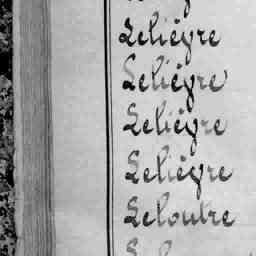 Lelièvre
Lelièvre
Lelièvre
Lelièvre
Leloutre